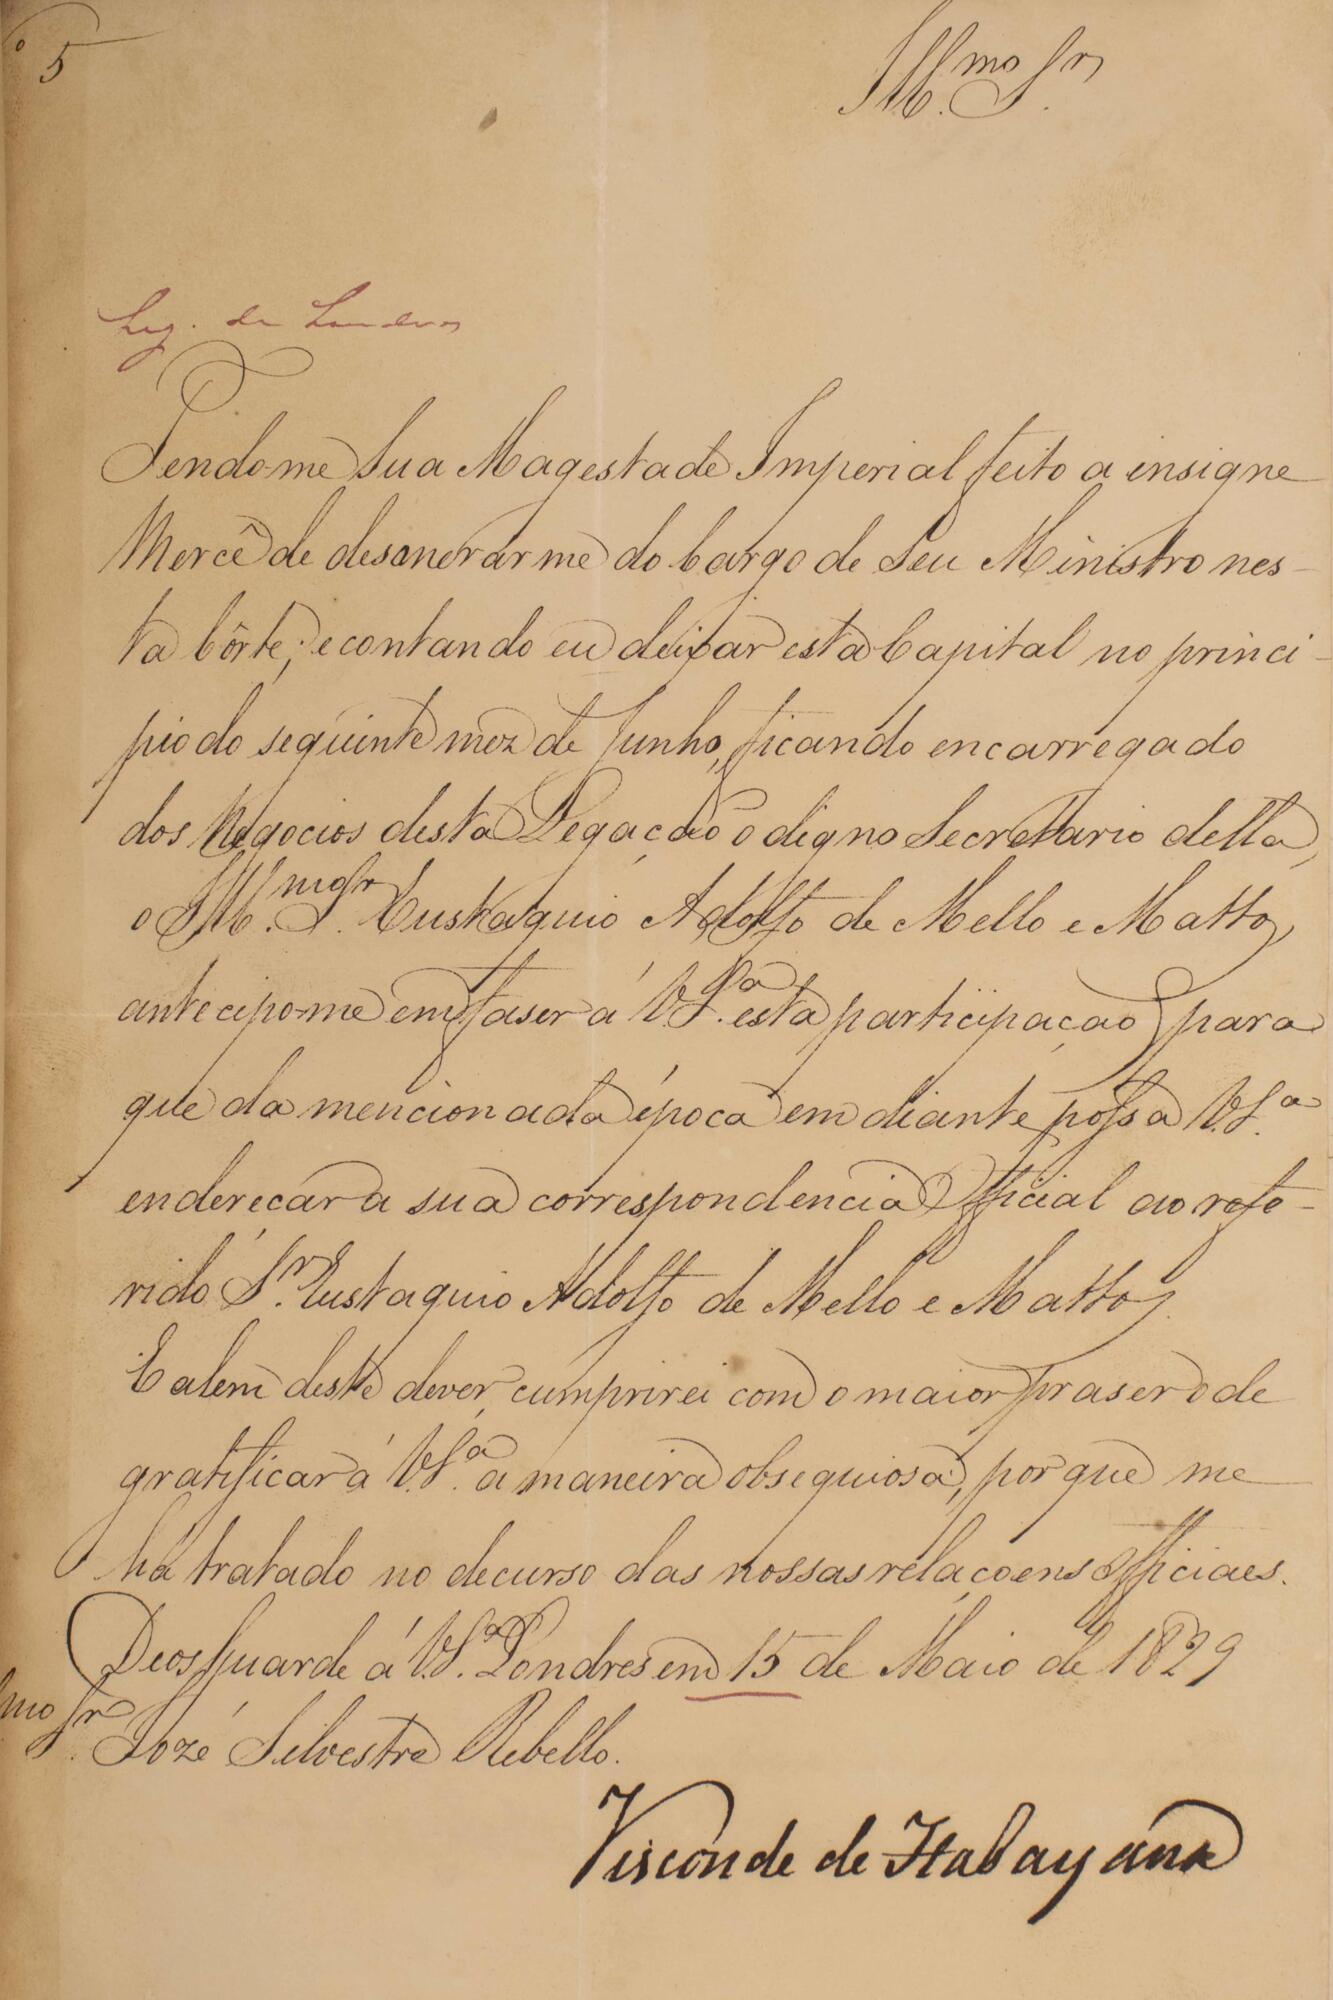 º 5
Ill.mo Sr.
Leg. de Londres
Tendo-me Sua Magestade Imperial feito a insigne
Mercê de desonerar me do Cargo de Seu Ministro nes-
ta Côrte; e contando eu deixar esta Capital no princi-
pio do seguinte mez de Junho, ficando encarregado
dos Negocios desta Legação o digno Secretario della,
o Ill.mo Sr. Eustaquio Adolfo de Mello e Mattos,
antecipo-me em faser á V.S.ª esta participação para
que da mencionada época em diante possa V.S.ª
endereçar a sua correspondencia Official ao refe-
rido Sr. Eustaquio Adolfo de Mello e Mattos.
E alem deste dever, cumprirei com o maior praser o de
gratificar á V.S.ª a maneira obsequiosa, porque me
há tratado no decurso das nossas relaçoens Officiaes.
Deos Guarde á V.S.ª Londres em 15 de Maio de 1829
mo Sr. Jozé Silvestre Rebello.
Visconde de Itabayana